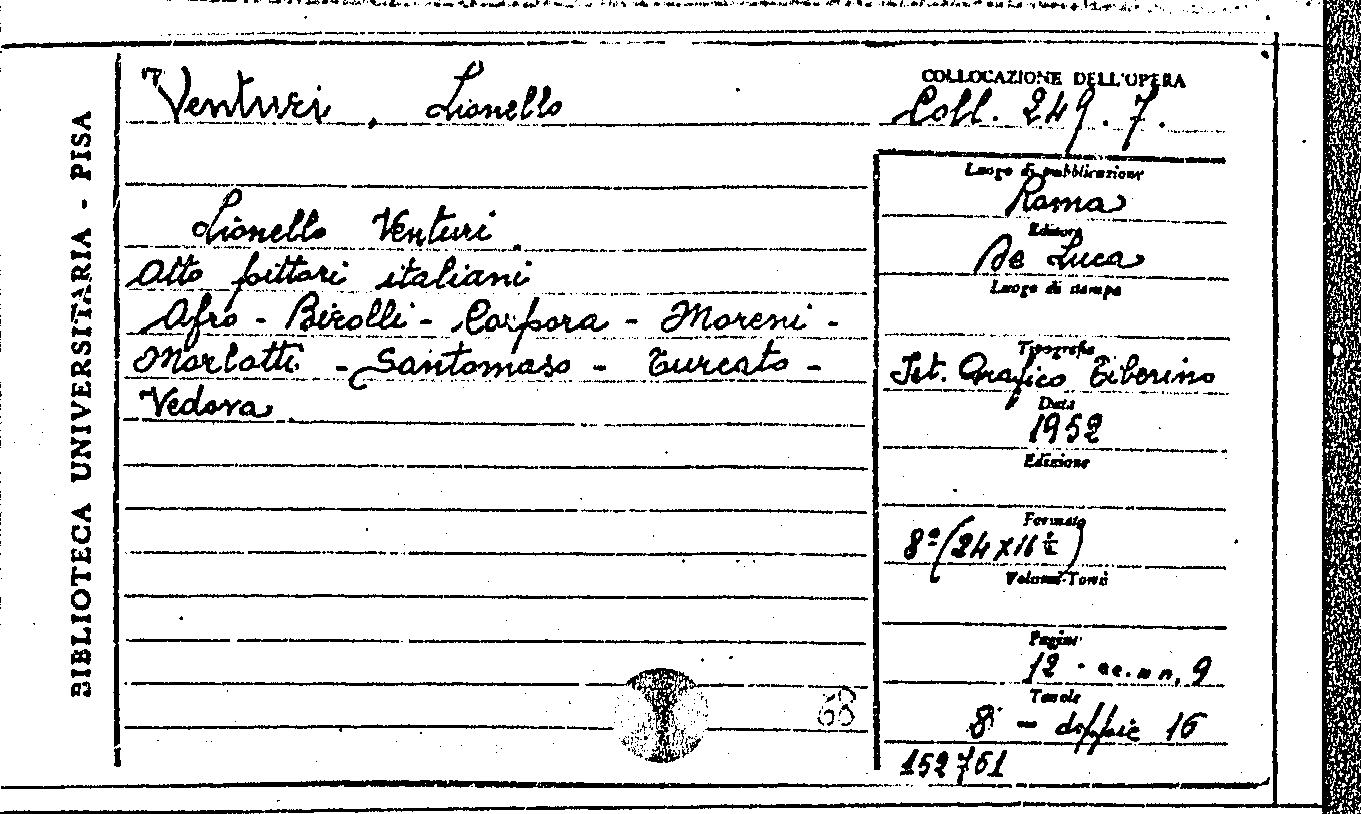 BIBLIOTECA UNIVERSITARIA - PISA
Venturi, Lionello
Lionello Venturi.
Otto pittori italiani
Afro - Birolli - Corpora - Moreni -
Morlotti - Santomaso - Turcato -
Vedova.
68
COLLOCAZIONE DELL'OPERA
Coll. 249.7.
Luogo di pubblicazione
Roma
Editore
De Luca
Luogo di stampa
Tipografia
Ist. Grafico Tiberino
Data
1952
Edizione
Formato
8º (24x16½)
Volumi-Tomi
Pagine
12 - cc. n n. 9
Tavole
8 - doppie 16
152761